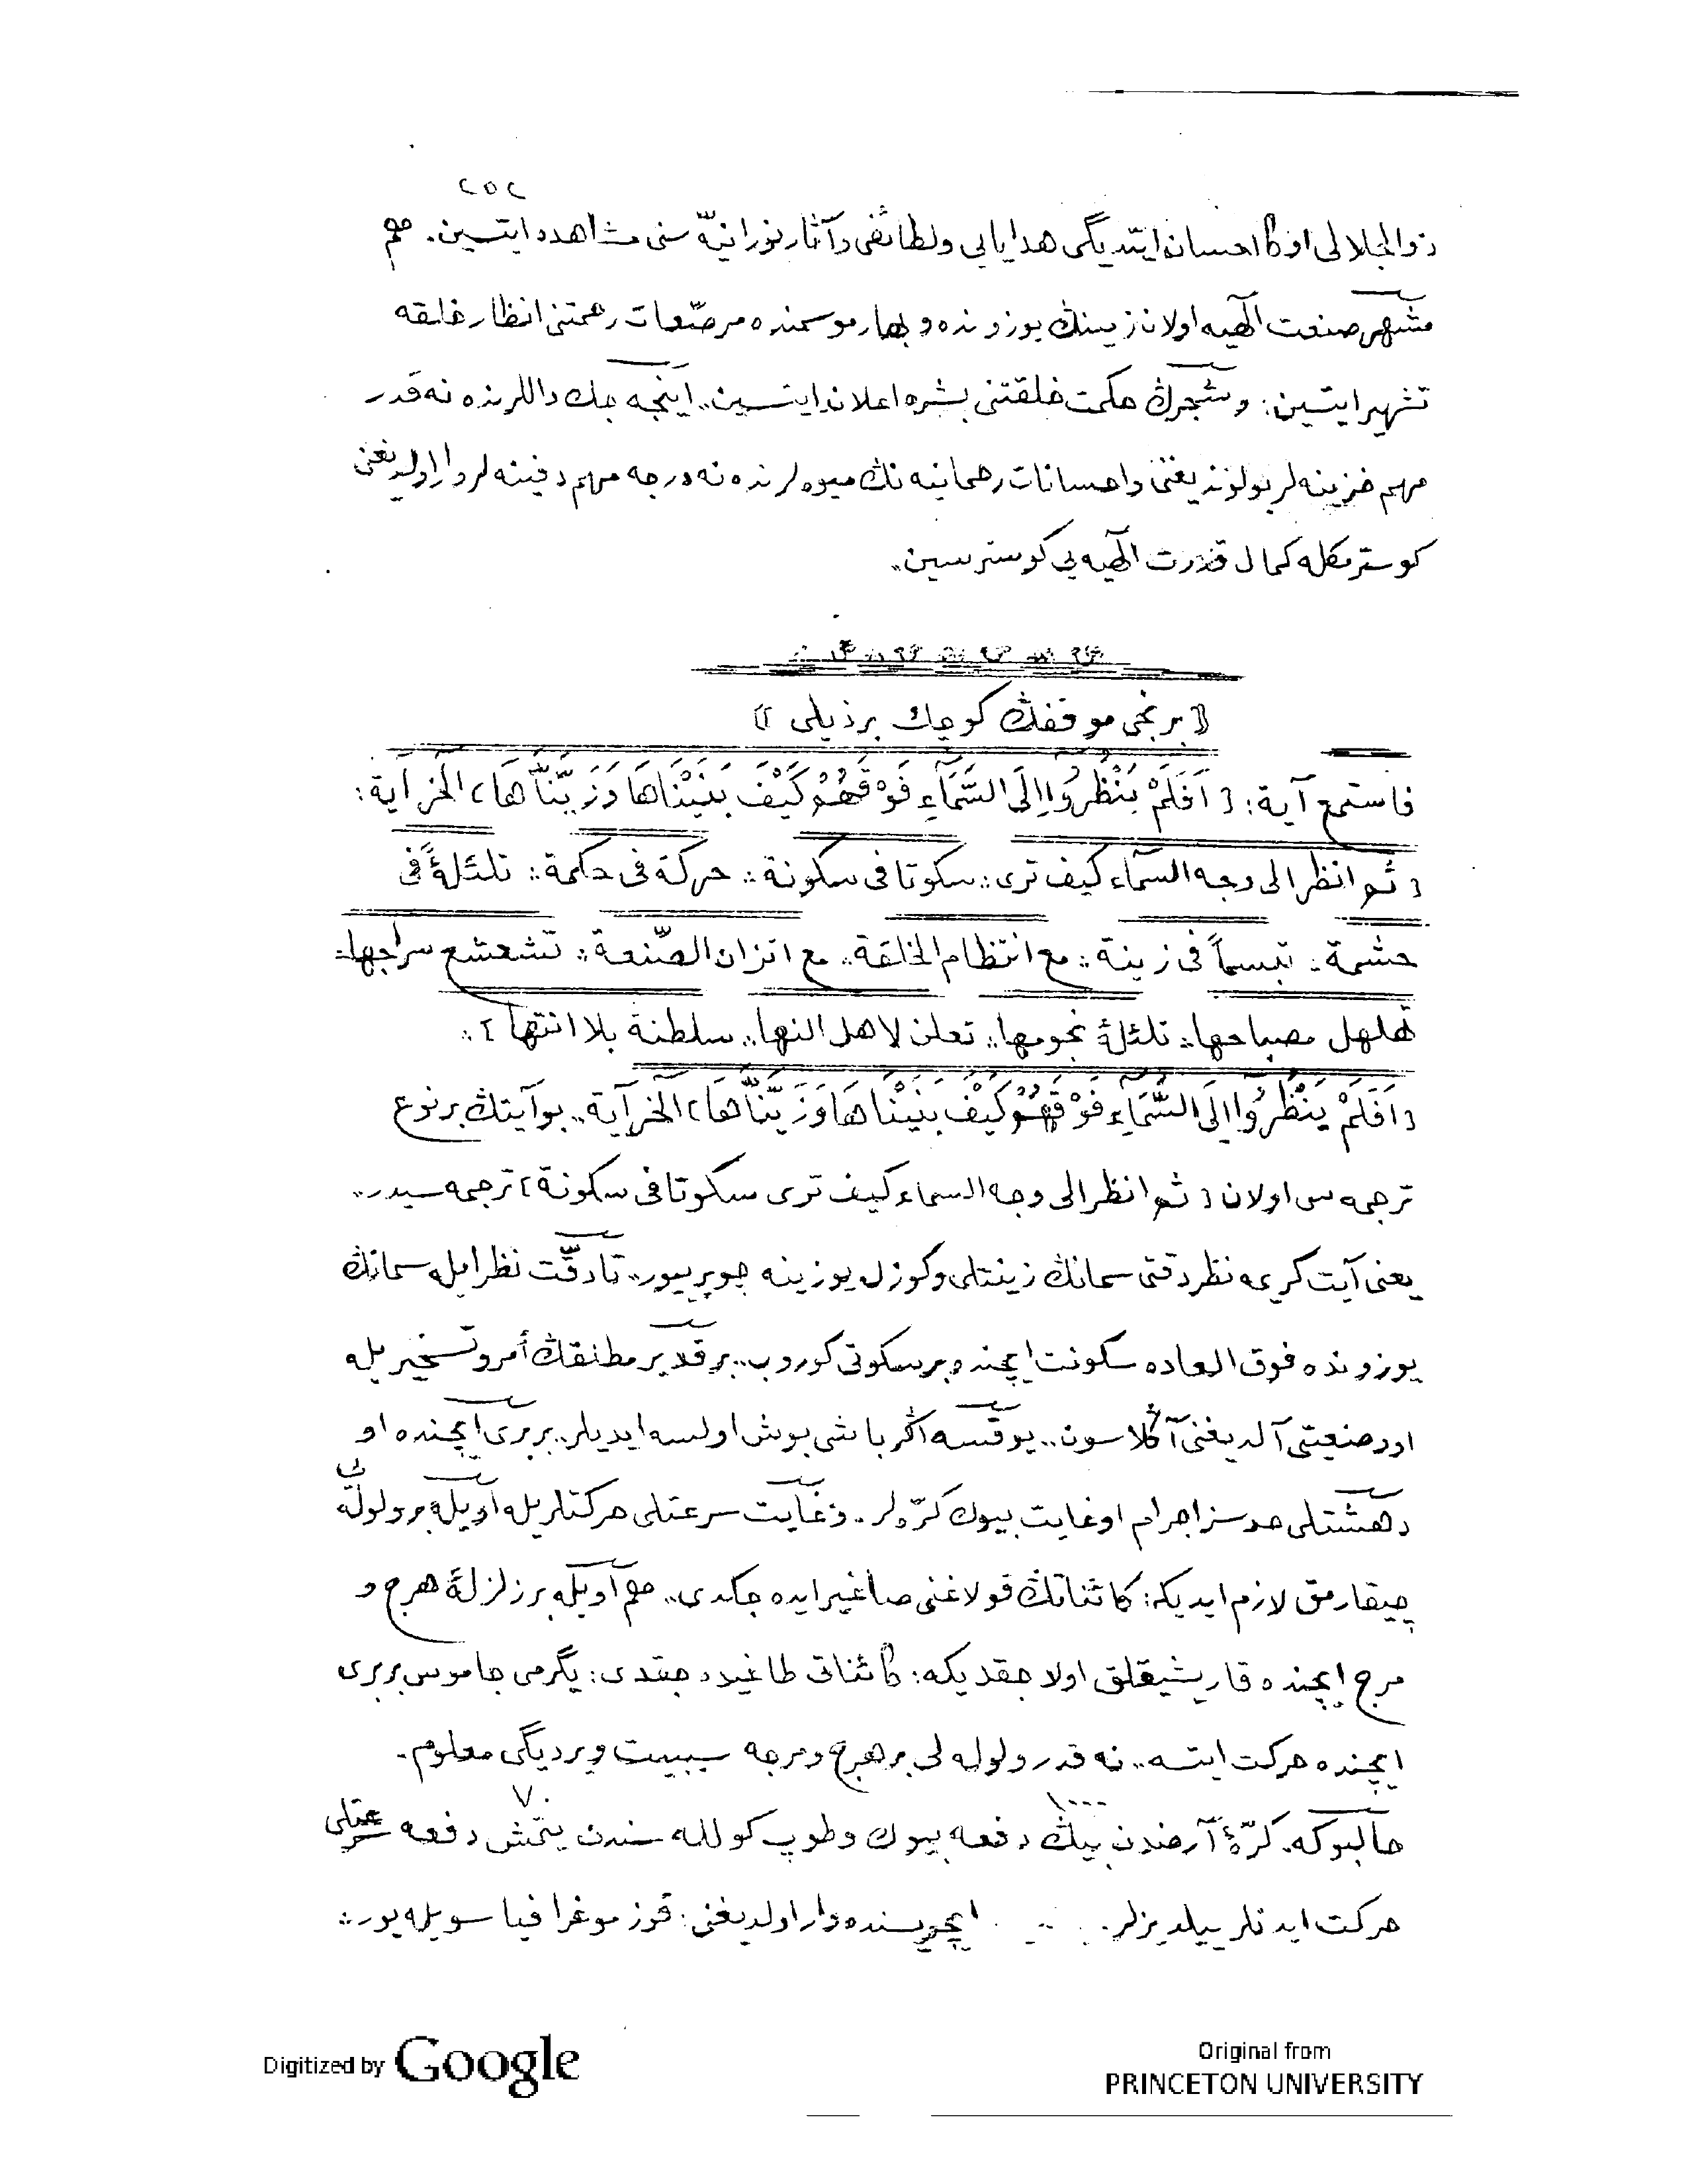 ٢٥٢
ذوالجلالی اوكا احسان ایتدیگی هدایایی ولطائفی وآثار نورانیّه سنی مشاهده ایتسین. هم
مشهر صنعت الٓهیه اولان زمینڭ یوزونده و بهار موسمنده مرصّعات رحمتنی انظار خلقه
تشهیر ایتسین: و شجرڭ حكمت خلقتنی بشره اعلان ایتسین.. اینجه جك داللرنده نه قدر
مهم خزینه لر بولوندیغنی و احسانات رحمانیه نڭ میوه لرنده نه درجه مهم دفینه لر وار اولدیغنی
كوسترمكله كمال قدرت الٓهیه یی كوسترسین.
﴿ برنجی موقفڭ كوچك بر ذیلی ﴾
فاستمع آیة: ﴿ اَفَلَمْ يَنْظُرُوا اِلَى السَّمَآءِ فَوْقَهُمْ كَيْفَ بَنَيْنَاهَا وَزَيَّنَّاهَا ﴾ الخر آیة:
﴿ ثم انظر الى وجه السمآء كیف ترى:: سكوتا فى سكونة:: حركة فى حكمة:: تلئلأً فى
حشمة:: تبسماً فى زینة:: مع انتظام الخلقة.. مع اتزان الصّنعة:: تشعشع سراجها::
تهلهل مصباحها:: تلئلأ نجومها:: تعلن لاهل النها.. سلطنة بلا انتها ﴾::
﴿ اَفَلَمْ يَنْظُرُوا اِلَى السَّمَآءِ فَوْقَهُمْ كَيْفَ بَنَيْنَاهَا وَزَيَّنَّاهَا ﴾ الخر آیة.. بو آیتڭ بر نوع
ترجمه سی اولان ﴿ ثم انظر الى وجه السماء كیف ترى سكوتا فى سكونة ﴾ ترجمه سیدر..
یعنی آیت كریمه نظر دقتی سمانڭ زینتلی و كوزل یوزینه چویرییور.. تا دقّت نظر ایله سمانڭ
یوزونده فوق العاده سكونت ایچنده بر سكوتی كوروب.. بر قدیر مطلقڭ أمر و تسخیریله
او وضعیتی آلدیغنی آڭلاسون.. یوقسه اگر باشی بوش اولسه ایدیلر.. بربری ایچنده او
دهشتلی حدسز اجرام او غایت بیوك كرّه لر. و غایت سرعتلی حركتلریله اویله بر ولوله یی
چیقارمق لازم ایدیكه: كائناتڭ قولاغنی صاغیر ایده جكدی.. هم اویله بر زلزلۀ هرج و
مرج ایچنده قاریشیقلق اولاجقدیكه: كائناتی طاغیده جقدی: یگرمی جاموس بربری
ایچنده حركت ایتسه.. نه قدر ولوله لی بر هرج و مرجه سببیت ویردیگی معلوم.
١٠٠٠ ٧٠
حالبوكه. كرّۀ آرضدن بیڭ دفعه بیوك و طوپ كولله سندن یتمش دفعه سرعتلی
حركت ایدنلر ییلدیزلر. ایچریسنده وار اولدیغنی: قوزموغرافیا سویله یور::
Digitized by Google
Original from
PRINCETON UNIVERSITY